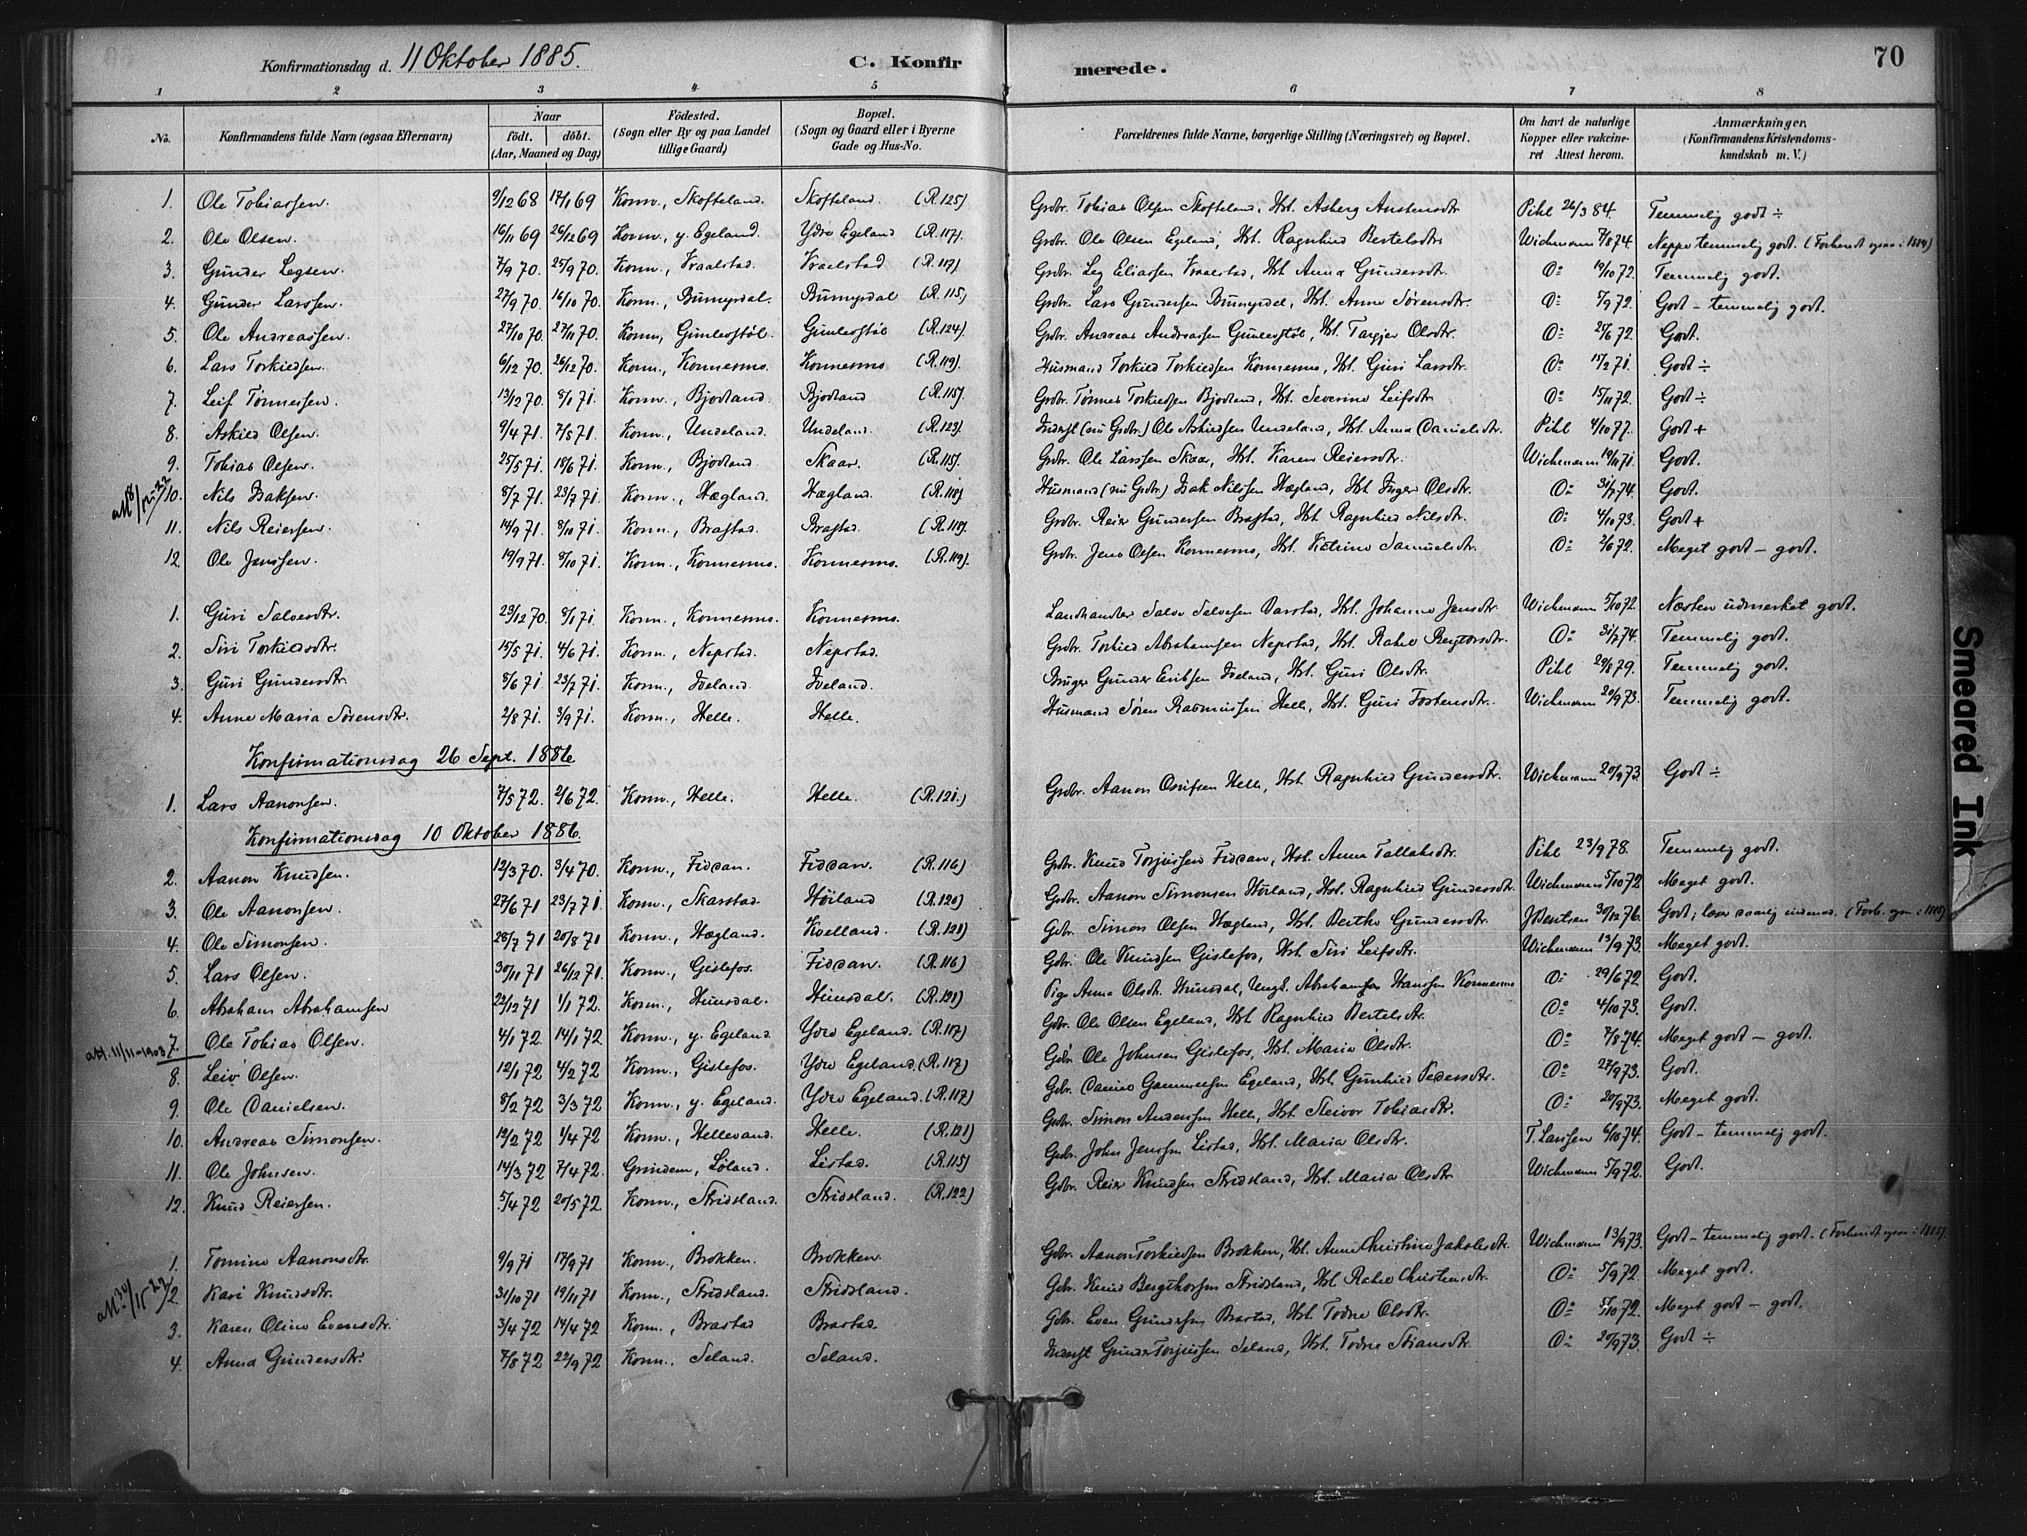 Konfirmationsdag d. 11 Oktober 1885. C. Konfir merede. 70
1 2 3 4 5 6 7 8
No. Konfirmandens fulde Navn (ogsaa Efternavn) Naar födt. döbt. (Aar, Maaned og Dag) Födested. (Sogn eller By og paa Landet tillige Gaard) Bopæl. (Sogn og Gaard eller i Byerne Gade og Hus-No. Forældrenes fulde Navne, borgerlige Stilling (Næringsvei) og Bopæl. Om havt de naturlige Kopper eller vakcineret Attest herom. Anmærkninger. (Konfirmandens Kristendomskundskab m. V.)
1. Ole Tobiassen. 9/12 68 17/1 69 Konn., Skofteland. Skofteland. (R.125) Grdbr. Tobias Olsen Skofteland, Hst. Asberg Austensdtr Pihl 26/3 84. Temmelig godt ÷
2. Ole Olsen. 16/11 69 26/12 69 Konn., y. Egeland. Ydre Egeland (R.117). Grdbr. Ole Olsen Egeland, Hst. Ragnhild Bertelsdtr Wichmann 7/8 74. Neppe temmelig godt. (Forberedt ogsaa i 1884)
3. Gunder Legsen. 7/9 70. 25/9 70. Konn., Vraalstad. Vraalstad (R.117) Grdbr. Leg Eliassen Vraalstad, Hst. Anna Gundersdtr. O: 19/10 72. Temmelig godt.
4. Gunder Larssen. 27/9 70. 16/10 70. Konn., (R.115) Grdbr. Lars Gundersen Hst. Anne Sørensdtr. O: 7/9 72. Godt – temmelig godt.
5. Ole Andreassen. 27/10 70. 27/11 70. Konn, Gunleostöl. Gunleostöl (R.124) Grdbr. Andreas Andreassen Gunleostöl, Hst. Targjer Olsdtr. O: Godt.
6. Lars Torkildsen. 6/12 70. 26/12 70. Konn., Konnesmo. Konnesmo (R.119) Husmand Torkild Torkildsen Konnesmo, Hst. Guri Larsdtr. O: Godt ÷
7. Leif Tönnessen. 13/12 70. 8/1 71. Konn., Bjodland. Bjodland (R.115) Grdbr. Tönnes Torkildsen Bjodland, Hst. Severine Leifsdtr O: 15/11 72. Godt ÷
8. Askild Olsen. 9/4 71. 7/5 71. Konn., Undeland. Undeland. (R.123) Inderst (nu Grdbr.) Ole Askildsen Undeland, Hst. Anna Danielsdtr. Pihl 4/10 77. Godt +
9. Tobias Olsen. 25/5 71. 18/6 71. Konn., Bjodland. Skaar. (R.115) Grdbr. Ole Larssen Skaar, Hst. Karen Reiersdtr. Wichmann 19/11 71. Godt.
10. Nils Isaksen. 8/7 71. 23/7 71. Konn., Hægland. Hægland. (R.118) Husmand (nu Grdbr.) Isak Nilssen Hægland, Hst Inger Olsdtr. O: 31/7 74. Godt.
11. Nils Reiersen. 14/9 71. 8/10 71. Konn., Brastad. Brastad. (R.118) Grdbr. Reier Gundersen Brastad, Hst Ragnhild Nilsdtr. O: 4/10 73. Godt +
12. Ole Jenssen. 19/9 71. 8/10 71. Konn., Konnesmo. Konnesmo. (R.119). Grdbr. Jens Olsen Konnesmo, Hst. Katrine Samuelsdtr. O: 2/6 72. Meget godt – godt.
1. Guri Salvesdtr. 23/12 70. 8/1 71. Konn., Konnesmo. Konnesmo. Landhandler Salve Salvesen Hst. Johanne Jensdtr Wichmann 5/10 72. Næsten udmerket godt.
2. Siri Torkildsdtr. 15/5 71. 4/6 71. Konn., Nepstad. Nepstad. Grdbr. Torkild Abrahamsen Nepstad, Hst. Rahel O: 31/7 74. Temmelig godt.
3. Guri Gundersdtr. 8/6 71. 23/7 71. Konn., Iveland. Iveland. Bruger Gunder Eriksen Iveland, Hst. Guri Olsdtr. Pihl 29/8 79. Temmelig godt.
4. Anne Maria Sørensdtr. 2/8 71. 3/9 71. Konn., Helle. Helle. Husmand Sören Rasmussen Helle, Hst. Guri Wichmann 20/9 73. Temmelig godt.
Konfirmationsdag 26 Sept. 1886
1. Lars Aanonsen. 7/5 72. 2/6 72. Konn., Helle. Helle. (R.121.) Grdbr. Aanon Helle, Hst Ragnhild Gundersdtr. Wichmann 20/9 73 Godt ÷
Konfirmationsdag 10 Oktober 1886.
2. Aanon Knudsen. 12/3 70. 3/4 70. Konn., Fidsan. Fidsan. (R.116) Grdbr. Knud Torjussen Fidsan, Hst. Anna Tallaksdtr. Pihl 23/9 78. Temmelig godt.
3. Ole Aanonsen. 27/6 71 23/7 71. Konn., Skarstad Höiland (R.120) Grdbr. Aanon Simonsen Höiland, Hst. Ragnhild Gundersdtr Wichmann 5/10 72 Meget godt.
4. Ole Simonsen. 28/7 71 20/8 71 Konn., Hægland. Kvelland. (R.121) Gdbr. Simon Olsen Hægland, Hst. Berthe Gundersdtr. J Bentsen 30/12 76. Godt;
5. Lars Olsen. 30/11 71 26/12 71. Konn., Gislefos. Fidsan. (R.116) Gdbr. Ole Knudsen Gislefos, Hst. Siri Leifsdtr. Wichmann 13/9 73. Meget godt.
6. Abraham Abrahamsen 22/12 71 1/1 72. Konn., Hunsdal. Hunsdal. (R.121) Pige Anna Olsdtr. Hunsdal, Ungk. Abraham Hanssen Konnesmo O: 29/6 72 Godt.
7. Ole Tobias Olsen. 4/1 72 14/1 72 Konn., y. Egeland. Ydre Egeland. (R.117) Gdbr. Ole Olsen Egeland, Hst Ragnhild Bertelsdtr. O: 4/10 73. Godt.
8. Leiv Olsen. 12/1 72 4/2 72 Konn., Gislefos. Ydre Egeland. (R.117) Gdbr Ole Johnsen Gislefos, Hst. Maria Olsdtr. O: 7/8 74. Meget godt – godt.
9. Ole Danielsen. 8/2 72 3/3 72 Konn., y. Egeland. Ydre Egeland. (R.117) Gdbr. Daniel Gammelsen Egeland, Hst. Gunhild Pedersdtr. O: 27/9 73. Godt.
10. Andreas Simonsen. 19/2 72 1/4 72 Konn., Hellevand. Helle. (R.121) Gdbr. Simon Anderssen Helle, Hst Steivor Tobiasdtr. O: 20/9 73. Meget godt.
11. Ole Johnsen. 14/3 72 7/4 72. Grindem, Löland. Listad. (R.115) Gdbr. John Jenssen Listad, Hst. Maria Olsdtr. T. Larssen 6/10 74. Godt – temmelig godt.
12. Knud Reiersen. 5/4 72 20/5 72 Konn., Stridsland. Stridsland. (R.122) Gdbr. Reier Knudsen Stridsland, Hst. Maria Olsdtr. Wichmann 5/9 72. Godt.
1. Tomine Aanonsdtr. 9/9 71 17/9 71 Konn., Brokken. Brokken. Gdbr. Aanon Torkildsen Brokken, Hst. Anne Christine Jakobsdtr Wichmann 13/9 73. Godt – temmelig godt – (Forberedt ogsaa i 1885)
2. Kari Knudsdtr. 31/10 71 19/11 71 Konn., Stridsland. Stridsland. Gdbr. Knud Bergthorsen Stridsland, Hst Rahel Christensdtr. O: 5/9 72. Meget godt.
3. Karen Oline Evensdtr. 3/4 72 14/4 72 Konn., Brastad Brastad. Gdbr. Even Gundersen Brastad, Hst. Todne Olsdtr. O: 5/10 72. Meget godt – godt.
4. Anna Gundersdtr. 7/8 72 22/9 72 Konn., Seland. Seland. Inderst Gunder Torjussen Seland, Hst. Todne O: 20/9 73. Godt ÷
Smeared Ink